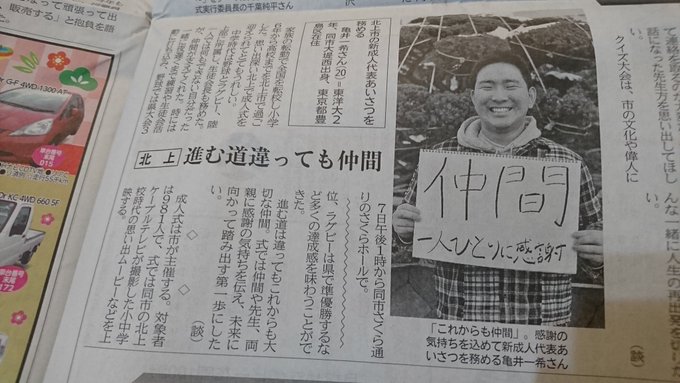 販売する」と抱負を語
式実行委員長の千葉純平さん
北上市の新成人代表あいさつを
務める
亀井一希さん(20)＝東洋大2
年、同市大堤西出身、東京都豊
島区在住
家族の転勤で全国を転校し小学
6年から高校までを北上市で過ご
した。思い出深い北上で成人式を
迎えられてとてもうれしい。
中学時代は野球とラグビー、陸
北上
進む道違っても仲間
7日午後1時から同市さくら通
りのさくらホールで。
位、ラグビーは県で準優勝するな
ど多くの達成感を味わうことがで
きた。
進む道は違ってもこれからも大
切な仲間。式では仲間や先生、両
親に感謝の気持ちを伝え、未来に
向かって踏み出す第一歩にした
い。
(談)
◇
◇
成人式は市が主催する。対象者
は981人で、式では同市の北上
ケーブルテレビが撮影した小中学
校時代の思い出ムービーなどを上
映する。
仲間
一人ひとりに感謝
「これからも仲間」。感謝の
気持ちを込めて新成人代表あ
いさつを務める亀井一希さん
クイズ大会は、市の文化や偉人に
て連絡を
話になった先生方を思い出してほし
い。
(談)
んな一緒に人生の再出発を
G-F 4WD 1300 AT
015
KC 4WD 660 5F
172